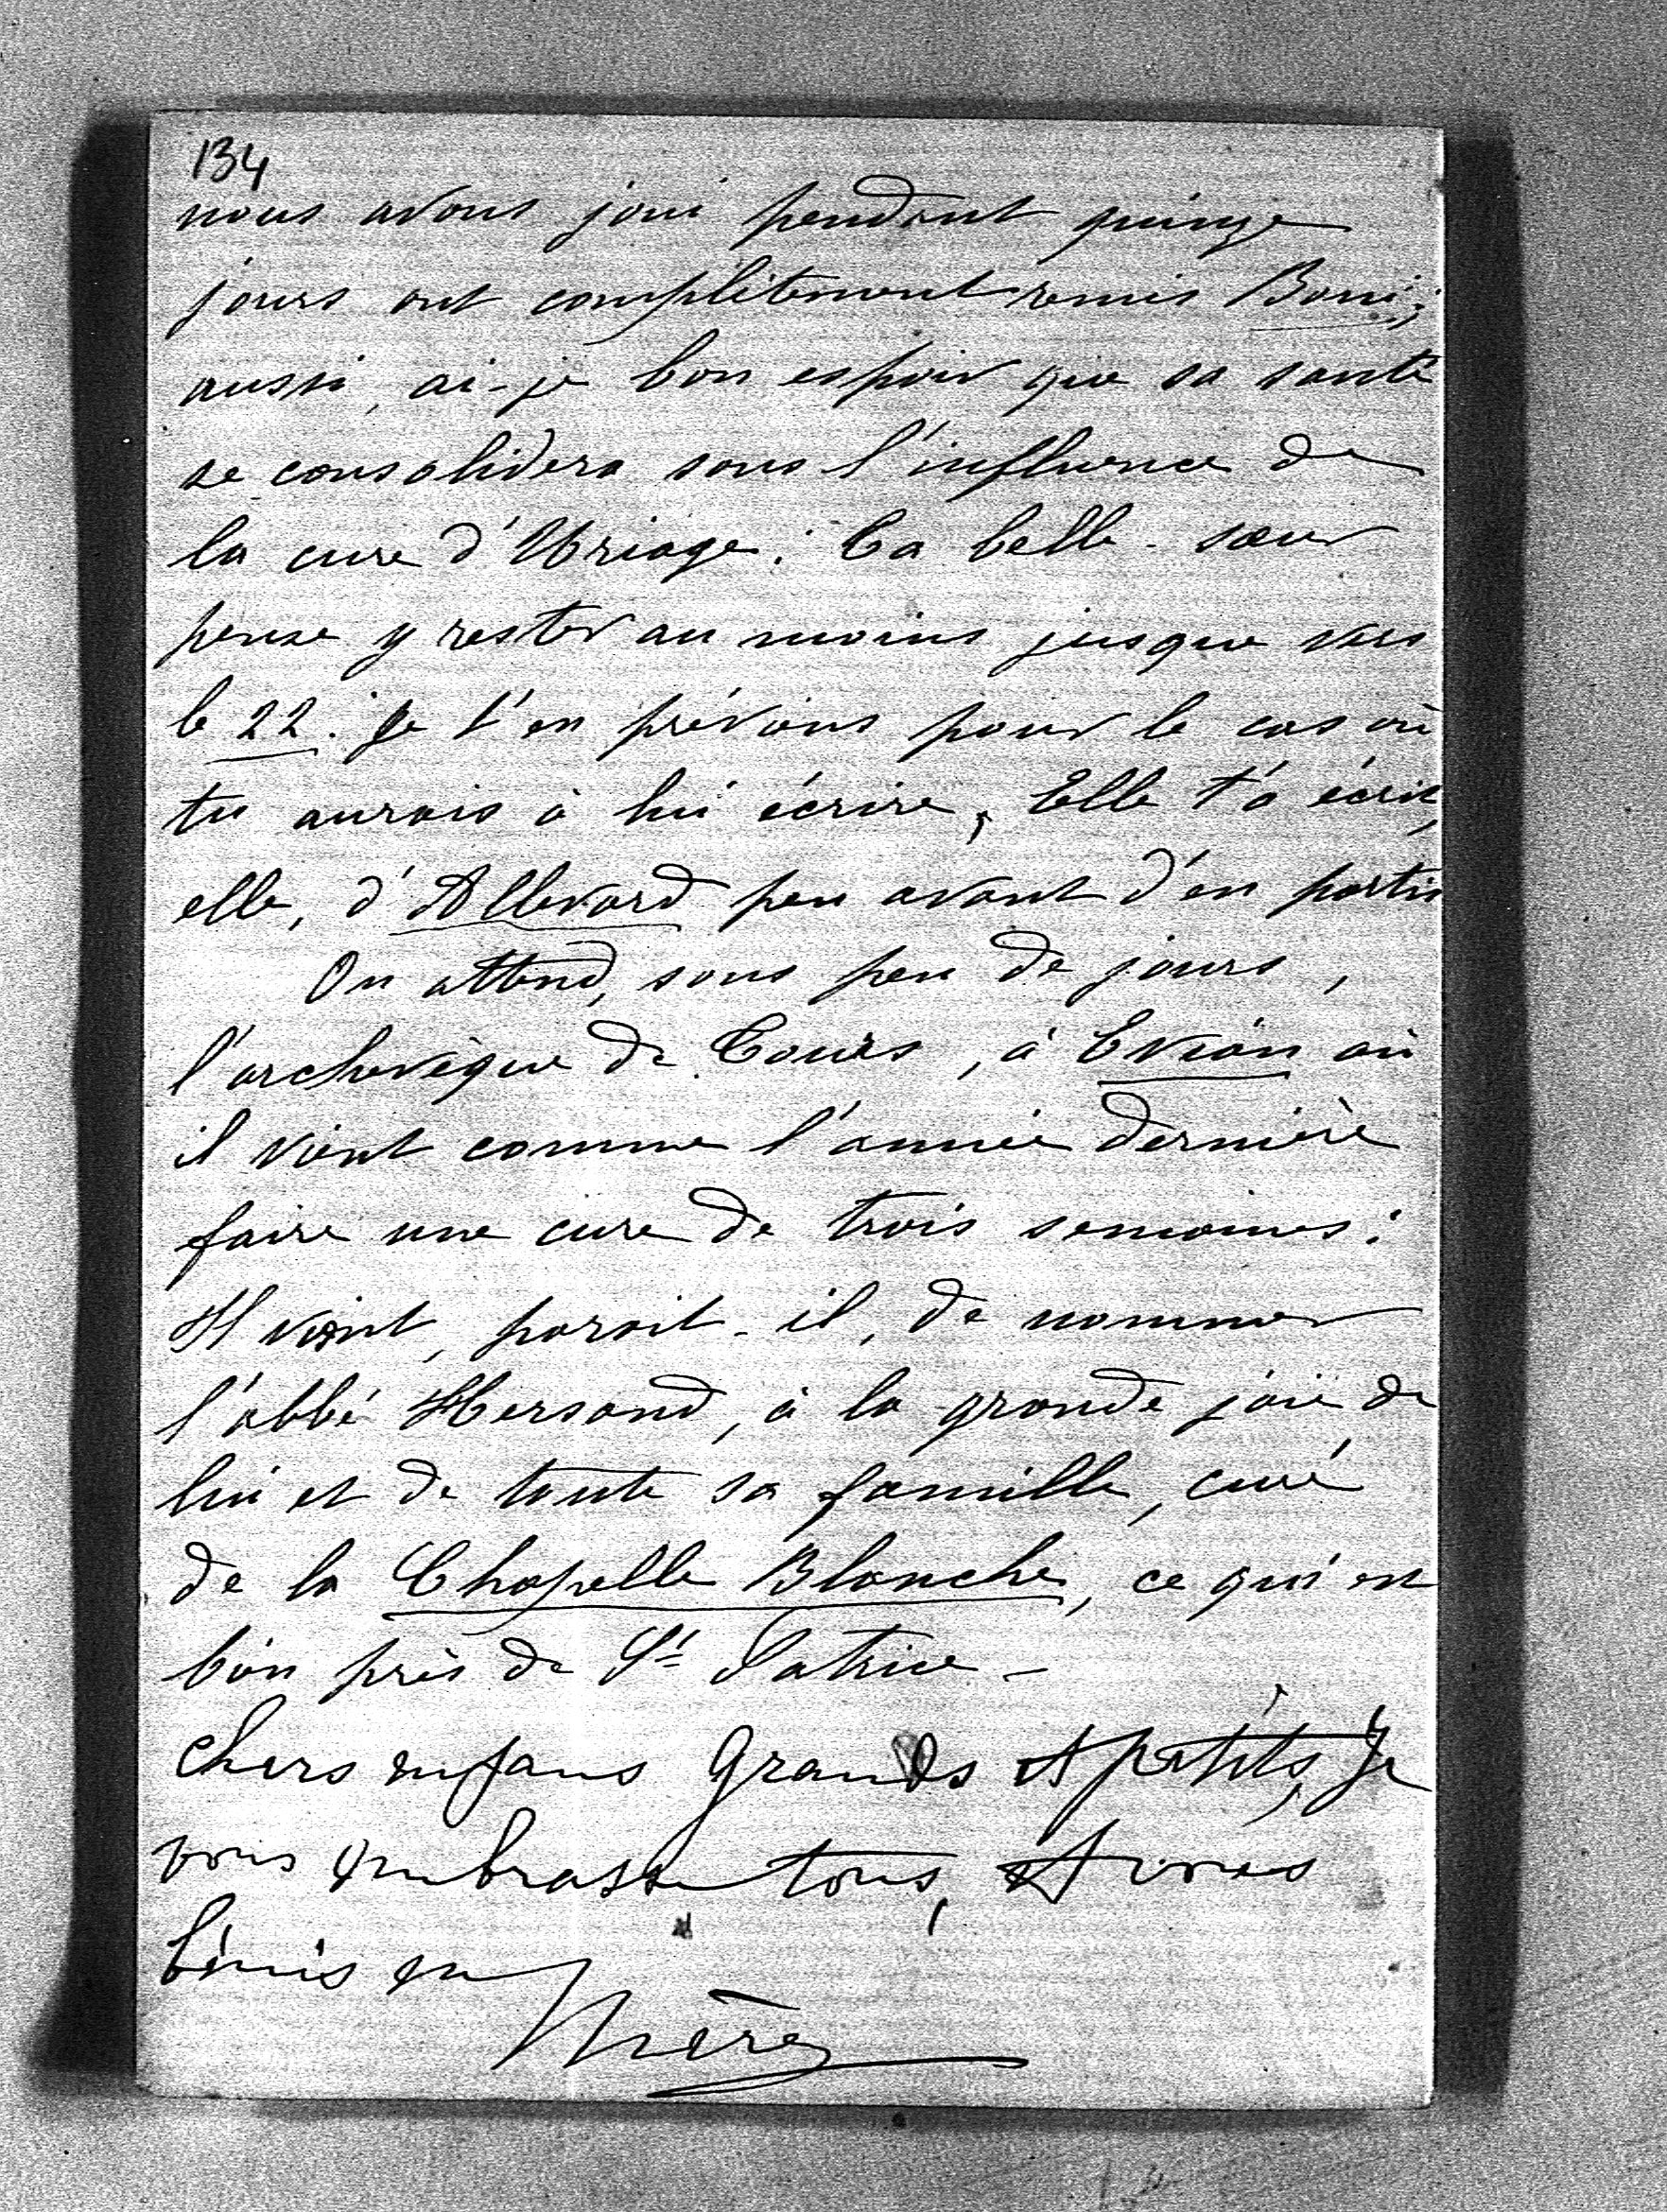 134
nous avons joui pendant quinze
jours ont complètement remis Boni;
aussi, ai-je bon espoir que sa santé
se consolidera sous l'influence de
la cure d'Uriage. Ta belle-sœur
pense y rester au moins jusque vers
le 22. Je t'en préviens pour le cas où
tu aurais à lui écrire, Elle t'a écrit,
elle, d'Allevard peu avant d'en partir
On attend, sous peu de jours,
l'archevèque de Tours, à Evian où
il vient comme l'année dernière
faire une cure de trois semaines:
Il vient, parait-il, de nommer
l'abbé Hersand, à la grande joie de
lui et de toute sa famille, curé
de la Chapelle Blanche, ce qui est
bien près de St Patrice -
chers enfans Grands et petits, Je
vous embrasse tous, et vous
bénis en
Mère